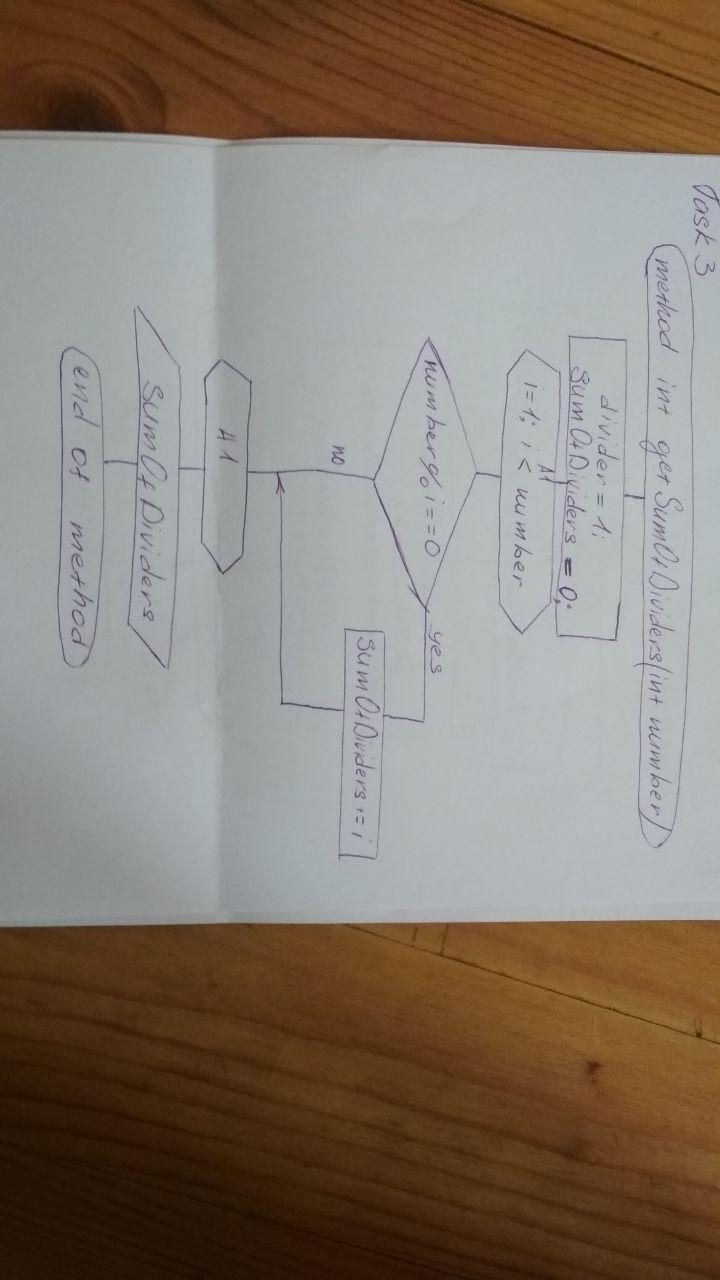 Task 3
method int getSumOfDividers(int number)
divider = 1;
sumOfDividers = 0;
A1
i=1; i < number
number% i == 0
yes
sumOfDividers += i
no
A1
sumOfDividers
end of method